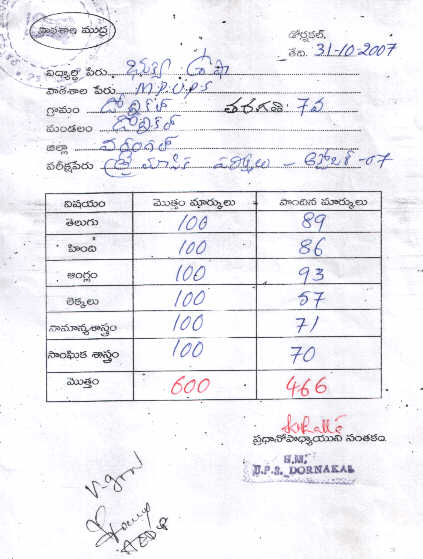 పాఠశాల ముద్ర
డోర్నకల్,
తేది. 31-10-2007
విద్యార్థి పేరు..
పాఠశాల పేరు.. M.P.U.P.S
గ్రామం డోర్నకల్ తరగతి: 7వ
మండలం డోర్నకల్
జిల్లా వరంగల్
పరీక్షపేరు త్రైమాసిక పరీక్షలు - అక్టోబర్ -07
విషయం మొత్తం మార్కులు పొందిన మార్కులు
తెలుగు 100 89
హింది 100 86
ఆంగ్లం 100 93
లెక్కలు 100 57
సామాన్యశాస్త్రం 100 71
సాంఘిక శాస్త్రం 100 70
మొత్తం 600 466
ప్రధానోపాధ్యాయుని సంతకం
H.M.
U.P.S. DORNAKAL